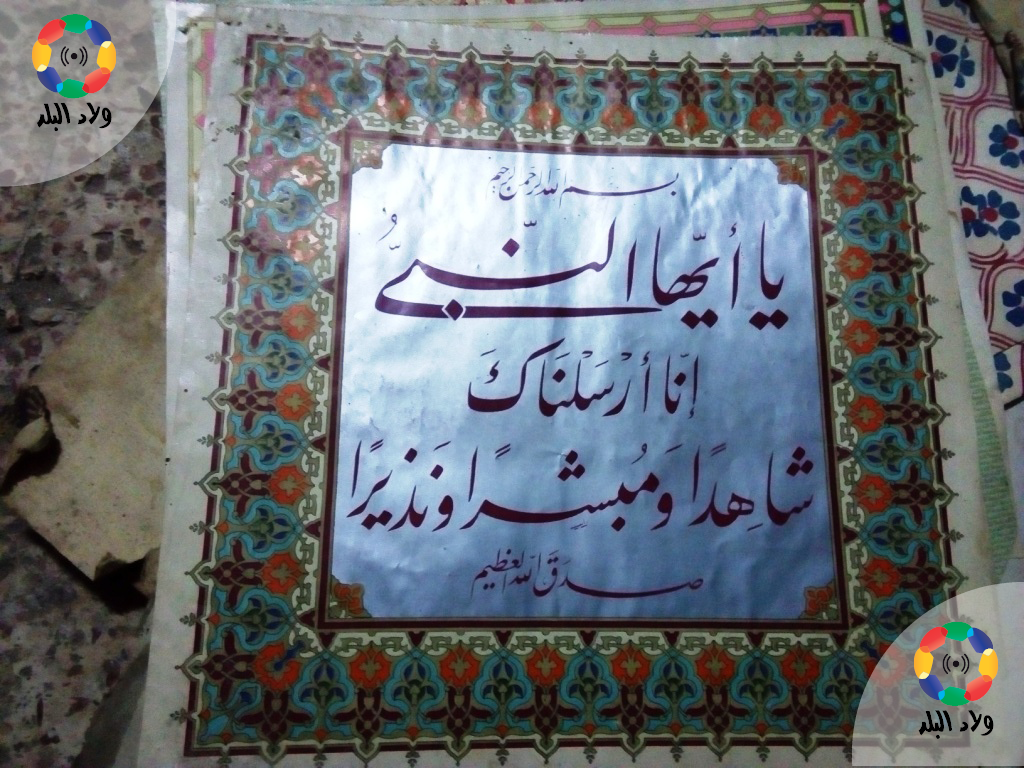 ولاد البلد
بسم الله الرحمن الرحيم
يا أيّها النّبيُّ
إنّا أرْسَلْنَاكَ
شاهِدًا وَمُبشِرًا وَنَذيرًا
صدَقَ اللّه العظيم
ولاد البلد